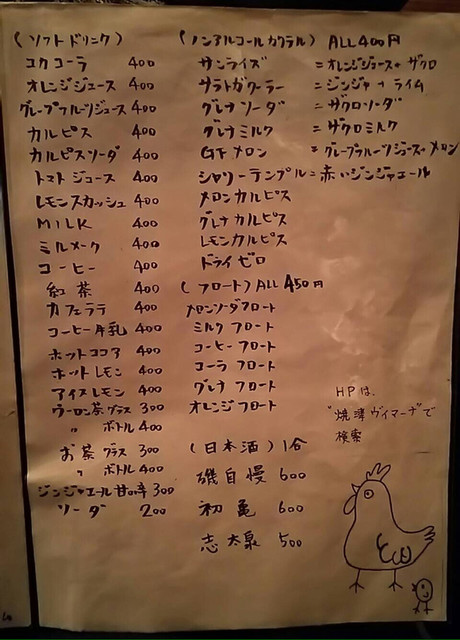 (ソフトドリンク)
コカコーラ 400
オレンジジュース 400
グレープフルーツジュース 400
カルピス 400
カルピスソーダ 400
トマトジュース 400
レモンスカッシュ 400
MILK 400
ミルメーク 400
コーヒー 400
紅茶 400
カフェラテ 400
コーヒー牛乳 400
ホットココア 400
ホットレモン 400
アイスレモン 400
ウーロン茶 グラス 300
〃 ボトル 400
お茶 グラス 300
〃 ボトル 400
ジンジャエール 甘or辛 300
ソーダ 200
(ノンアルコールカクテル) ALL 400円
サンライズ =オレンジジュース+ザクロ
サラトガクーラー =ジンジャ+ライム
グレナソーダ =ザクロソーダ
グレナミルク =ザクロミルク
GFメロン =グレープフルーツジュース+メロン
シャリーテンプル =赤いジンジャエール
メロンカルピス
グレナカルピス
レモンカルピス
ドライゼロ
(フロート) ALL 450円
メロンソーダフロート
ミルクフロート
コーヒーフロート
コーラフロート
グレナフロート
オレンジフロート
(日本酒) 1合
磯自慢 600
初亀 600
志太泉 500
HPは、
"焼津ヴィマーナ"で
検索